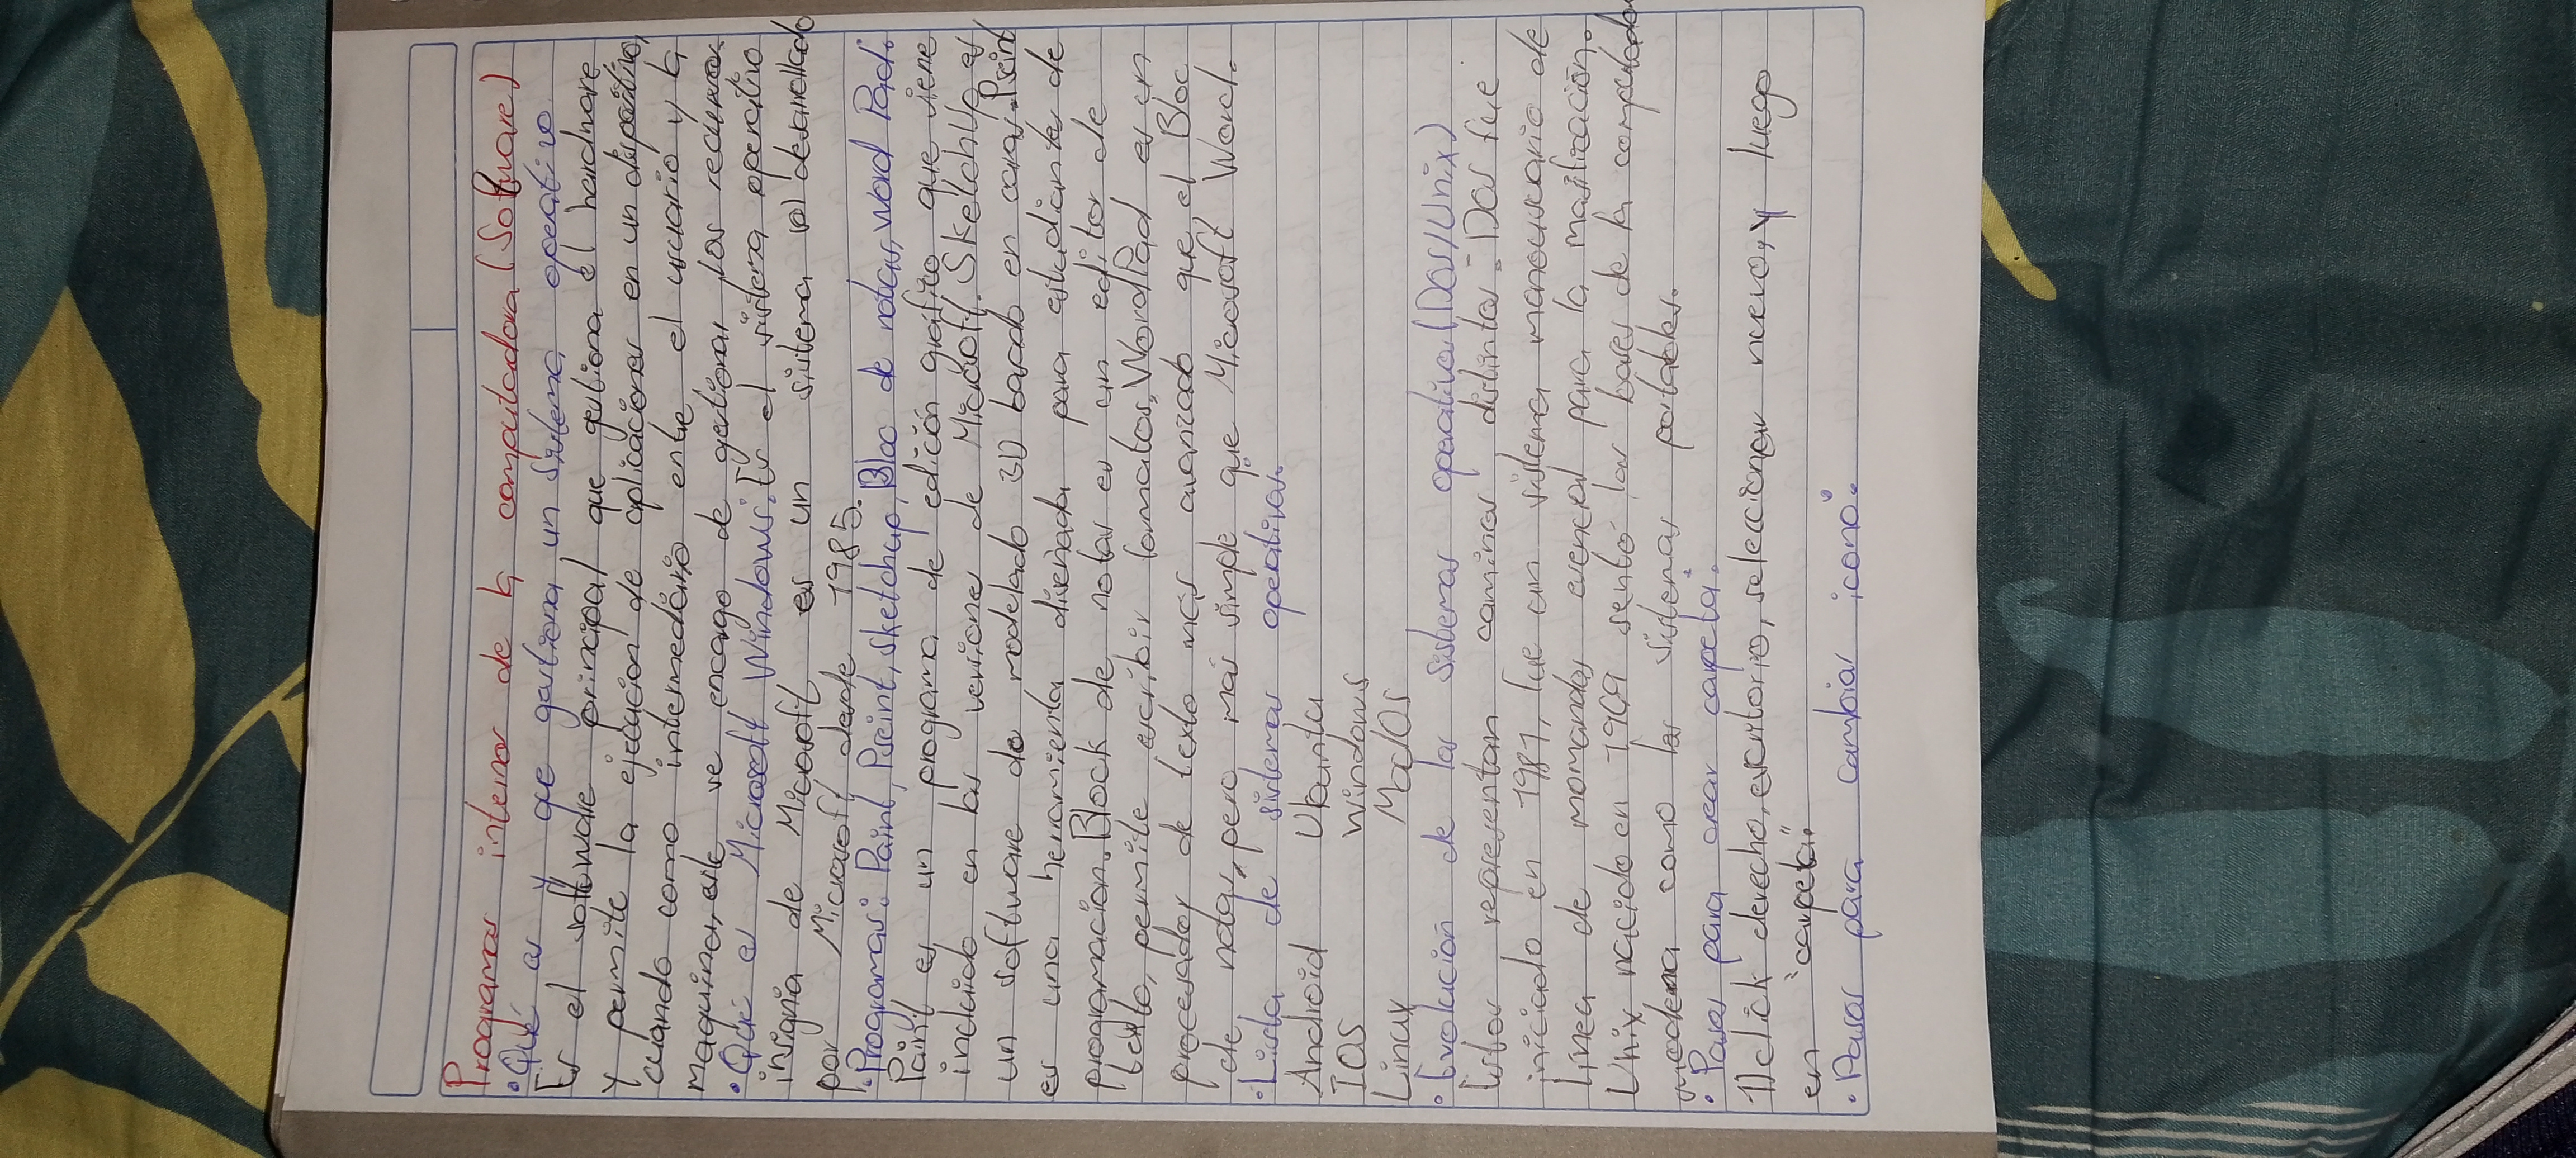 Programas internos de la computadora (Software)
• Qué es y que gestiona un sistema operativo
Es el software principal que gestiona el hardware
y permite la ejecucion de aplicaciones en un dispositivo,
cuando como intermediario entre el usuario y la
maquina, este se encarga de gestionar los recursos.
• Qué es Microsoft Windows: Es el sistema operativo
insignia de Microsoft, es un sistema desarrollado
por Microsoft desde 1985.
• Programas: Paint, Pseint, sketchup, Bloc de notas, Word Pad.
Paint es un programa de edición gráfico que viene
incluido en las versiones de Microsoft. SketchUp es
un software de modelado 3D basado en caras. Pseint
es una herramienta diseñada para estudiantes de
programacion. Block de notas es un editor de
texto, permite escribir formatos, WordPad es un
procesador de texto más avanzado que el Bloc
de notas, pero más simple que Microsoft Word.
• Lista de sistemas operativos.
Android Ubuntu
IOS Windows
Linux MacOS
• Evolución de los sistemas operativos (Dos/Unix)
Estos representan caminos distintos - Dos fue
iniciado en 1981, fue un sistema monousuario de
línea de momandos esencial para la masificación.
Unix nacido en 1969 sentó las bases de la computadora
moderna como los sistemas portables.
• Pasos para crear carpeta.
1) click derecho, escritorio, seleccionar nuevo, y luego
en "carpeta".
• Pasos para cambiar icono.